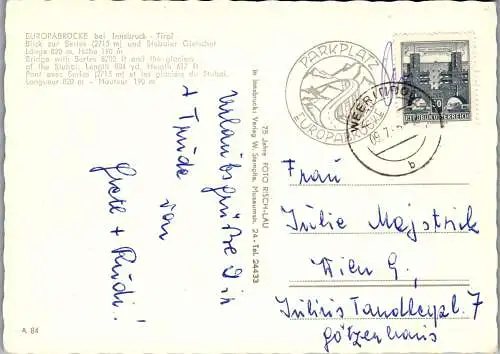 EUROPABRÜCKE bei Innsbruck - Tirol
Blick zur Serles (2715 m) und Stubaier Gletscher
Länge 820 m, Höhe 190 m
Bridge with Serles 8255 ft and the glaciers
of the Stubai. Length 804 yd. Height 617 ft
Pont avec Serles (2715 m) et les glaciers du Stubai.
Longueur 820 m - Hauteur 190 m
Urlaubsgrüße Dir
+ Trude von
Grete + Rudi!
A 84
75 Jahre FOTO RISCH-LAU
in Innsbruck: Verlag W. Stempfle, Museumstr. 24 - Tel. 24433
PARKPLATZ
EUROPABRÜCKE
REPUBLIK ÖSTERREICH
WEER
b
Frau
Julie Majstrick
Wien 9,
Julius Tandlerpl. 7
Götzenhaus